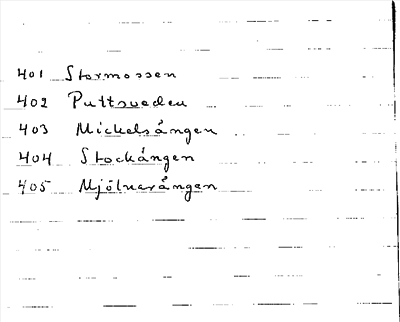 401 Stormossen
402 Puttsveden
403 Mickelsängen
404 Stockängen
405 Mjölnarängen